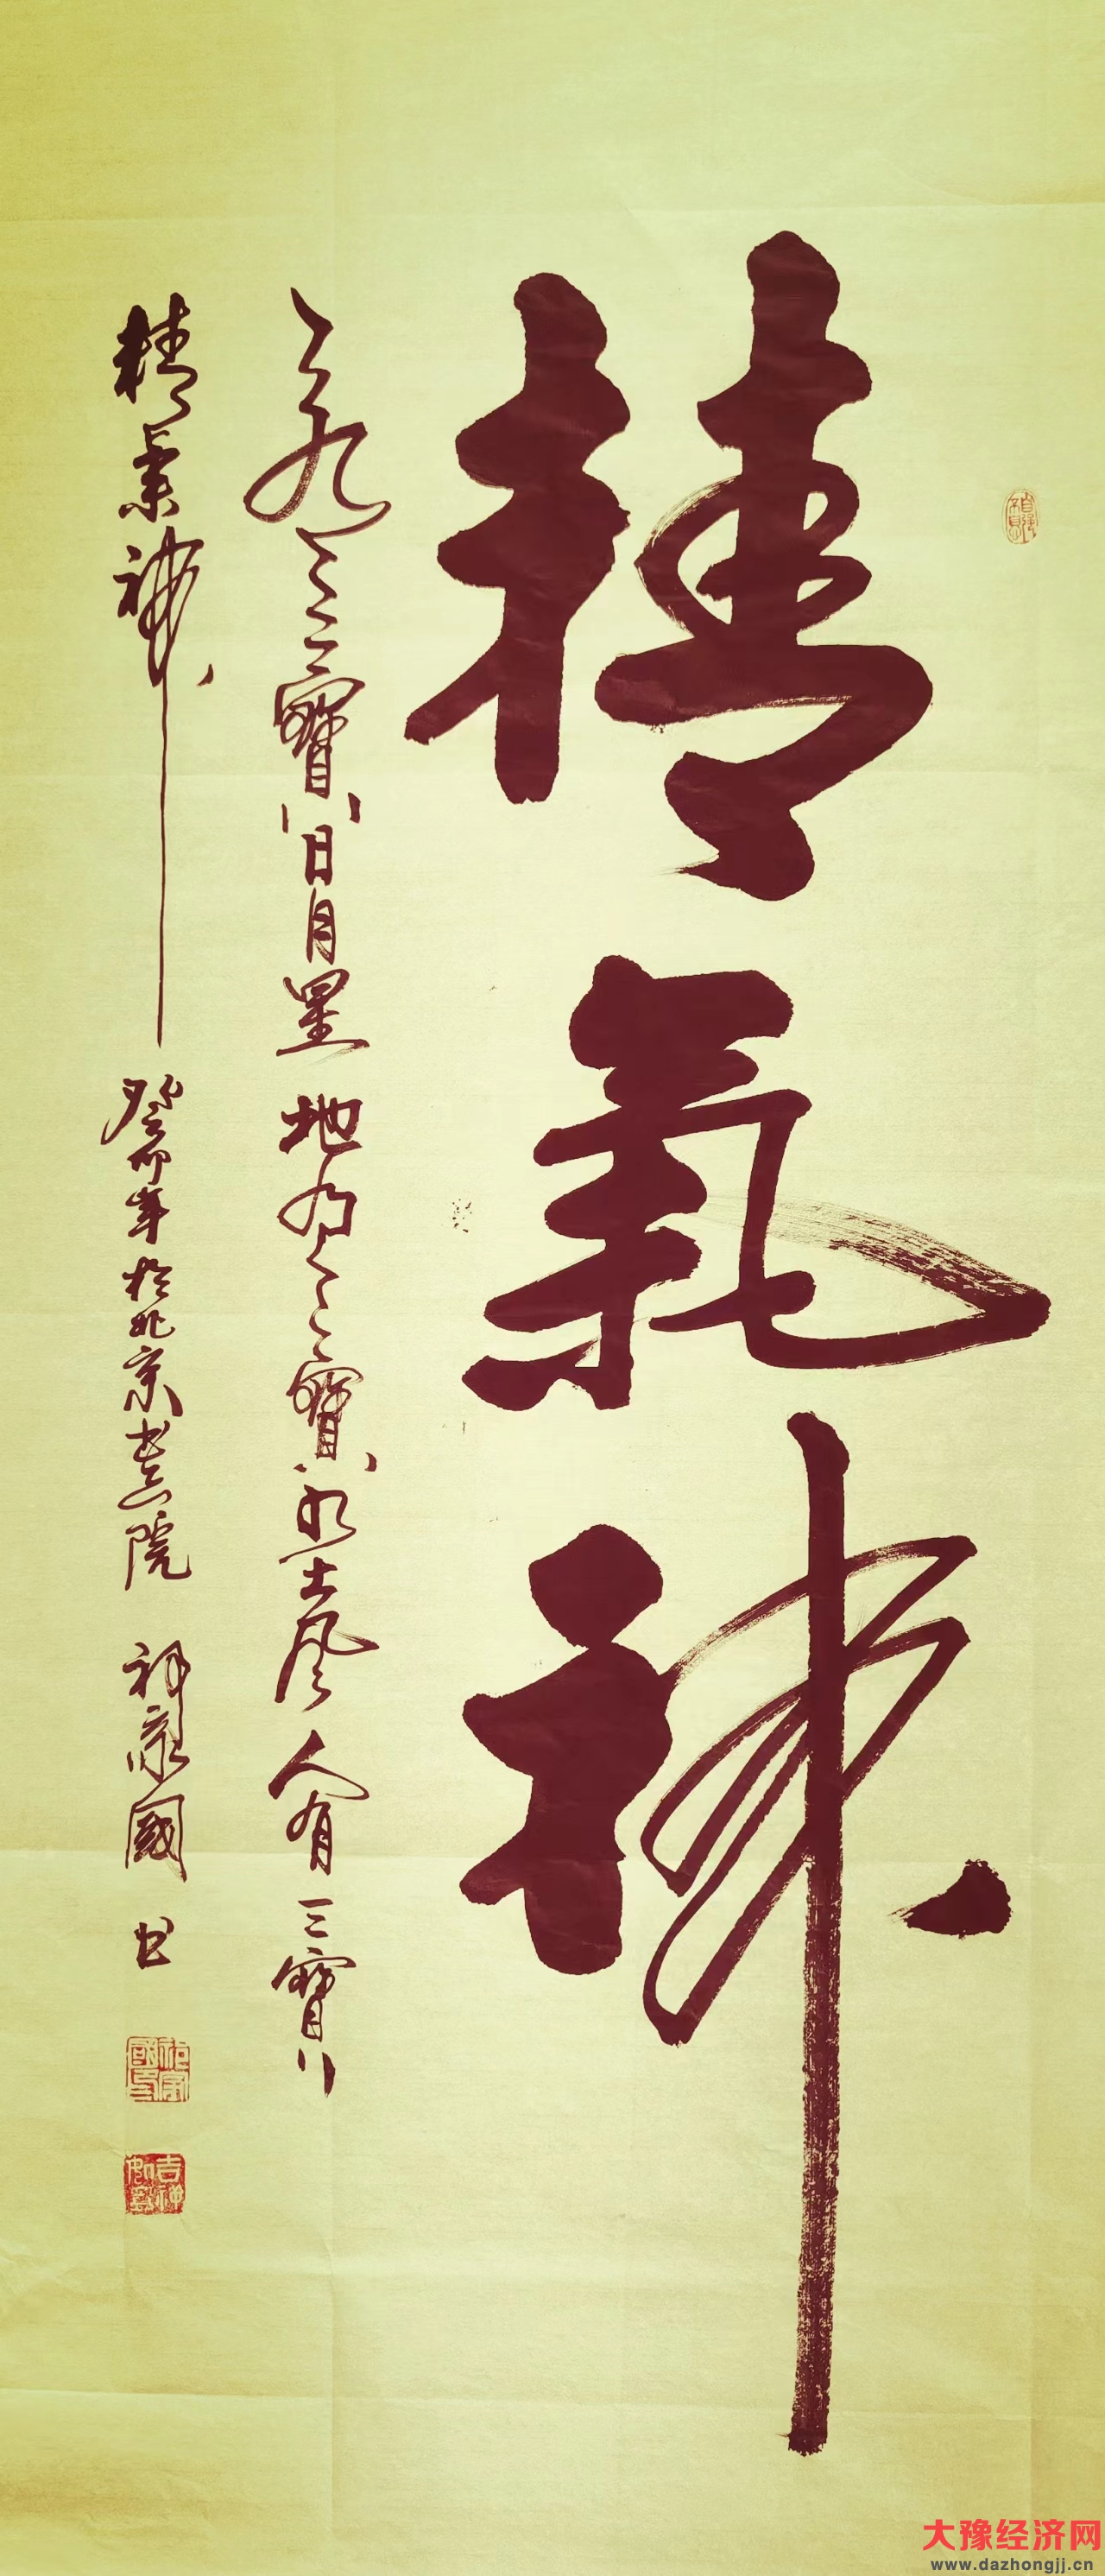 精氣神
天有三寶日月星 地有三寶水土風 人有三寶
精氣神 癸卯年於北京書院 家國 书
自強不息
吉祥如意
大豫经济网
www.dazhongjj.cn